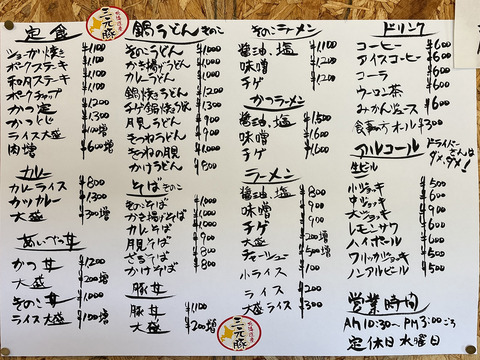 定食
ショーガ焼き ¥1,100
ポークステーキ ¥1,100
和風ステーキ ¥1,100
ポークチャップ ¥1,100
かつ定 ¥1200
かつとじ ¥1300
ライス大盛 ¥100増
肉増 ¥600増
カレー
カレーライス ¥800
カツカレー ¥1300
大盛 ¥300増
丼
かつ丼 ¥1200
大盛 ¥200増
きのこ丼 ¥1000
ライス大盛 ¥100増
北海道産
三元豚
鍋うどん きのこ
きのこうどん ¥1000
かき揚げうどん ¥1000
カレーうどん
鍋焼きうどん ¥1200
チゲ鍋焼きうどん ¥1300
月見うどん ¥900
きつねうどん ¥900
かけうどん ¥800
そば きのこ
きのこそば ¥1000
かき揚げそば ¥1000
カレーそば
月見そば ¥900
かけそば ¥800
豚丼
豚丼 ¥1100
大盛 ¥200増
きのこラーメン
醤油、塩 ¥1100
味噌 ¥1200
チゲ ¥1200
かつラーメン
醤油、塩 ¥1500
味噌 ¥1600
チゲ ¥1600
ラーメン
醤油、塩 ¥800
味噌 ¥900
チゲ ¥900
大盛 ¥200増
チャーシュー ¥500増
小ライス ¥100
ライス ¥200
大盛ライス ¥300
三元豚
ドリンク
コーヒー ¥600
アイスコーヒー ¥600
コーラ ¥600
ウーロン茶 ¥600
みかんジュース ¥600
食事の方 オール¥300
アルコール
ドライバーさんは
ダメ、ダメ!
生ビール
小ジョッキ ¥500
中ジョッキ ¥600
大ジョッキ ¥900
レモンサワー ¥600
ハイボール ¥600
ワリッカジョッキ ¥500
ノンアルビール ¥500
営業時間
AM10:30~PM3:00ごろ
定休日 水曜日